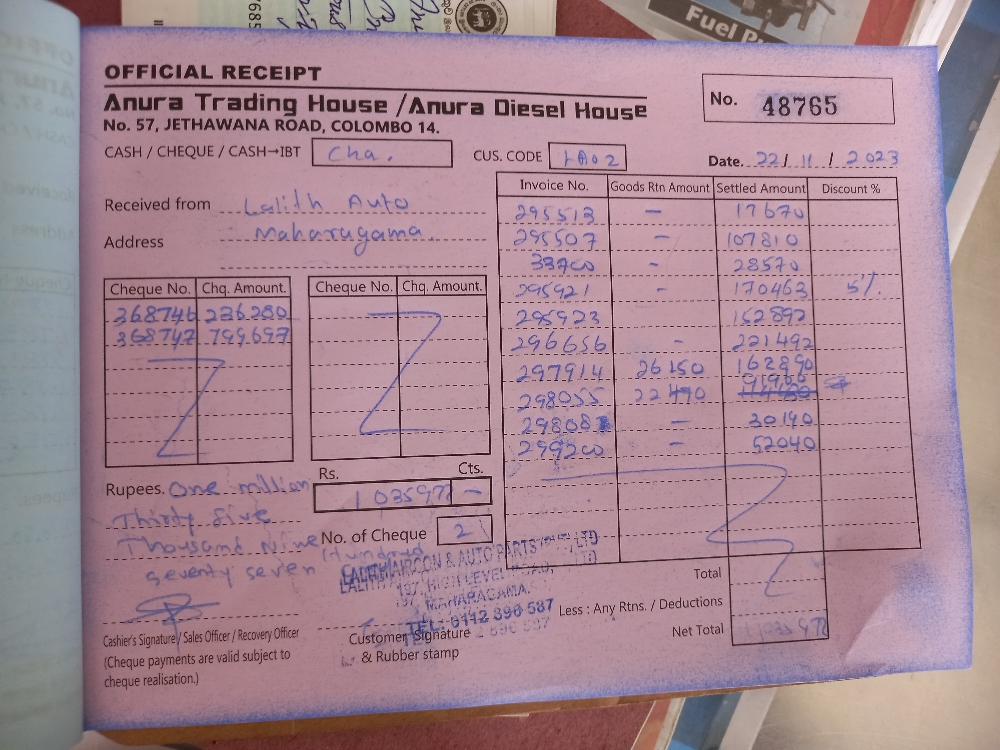 7685
Fuel P
OFFICIAL RECEIPT
Anura Trading House /Anura Diesel House
No. 57, JETHAWANA ROAD, COLOMBO 14.
No. 48765
CASH / CHEQUE / CASH→IBT Cha.
CUS. CODE LA02
Date. 22/ 11 / 2023
Received from Lalith Auto
Address Maharagama
Invoice No. Goods Rtn Amount Settled Amount Discount %
295513 – 17670
295507 – 107810
33700 – 28570
295921 – 170463 5%.
295923 152892
296656 - 221492
297914 26150 162890
91960
298055 22490
298081 – 30190
299200 – 52040
Cheque No. Chq. Amount.
368746 236280
368747 799697
Cheque No. Chq. Amount.
Rupees. One million
Thirty five
Thousand Nine Hundred
seventy seven
Rs. Cts.
1035977 –
No. of Cheque 2
LALITH AIRCON & AUTO PARTS LTD
197, HIGH LEVEL ROAD,
MAHARAGAMA.
TEL: 0112 896 587
Total
Less : Any Rtns. / Deductions
Net Total 1035977
Cashier's Signature/ Sales Officer / Recovery Officer
(Cheque payments are valid subject to
cheque realisation.)
Customer Signature
& Rubber stamp